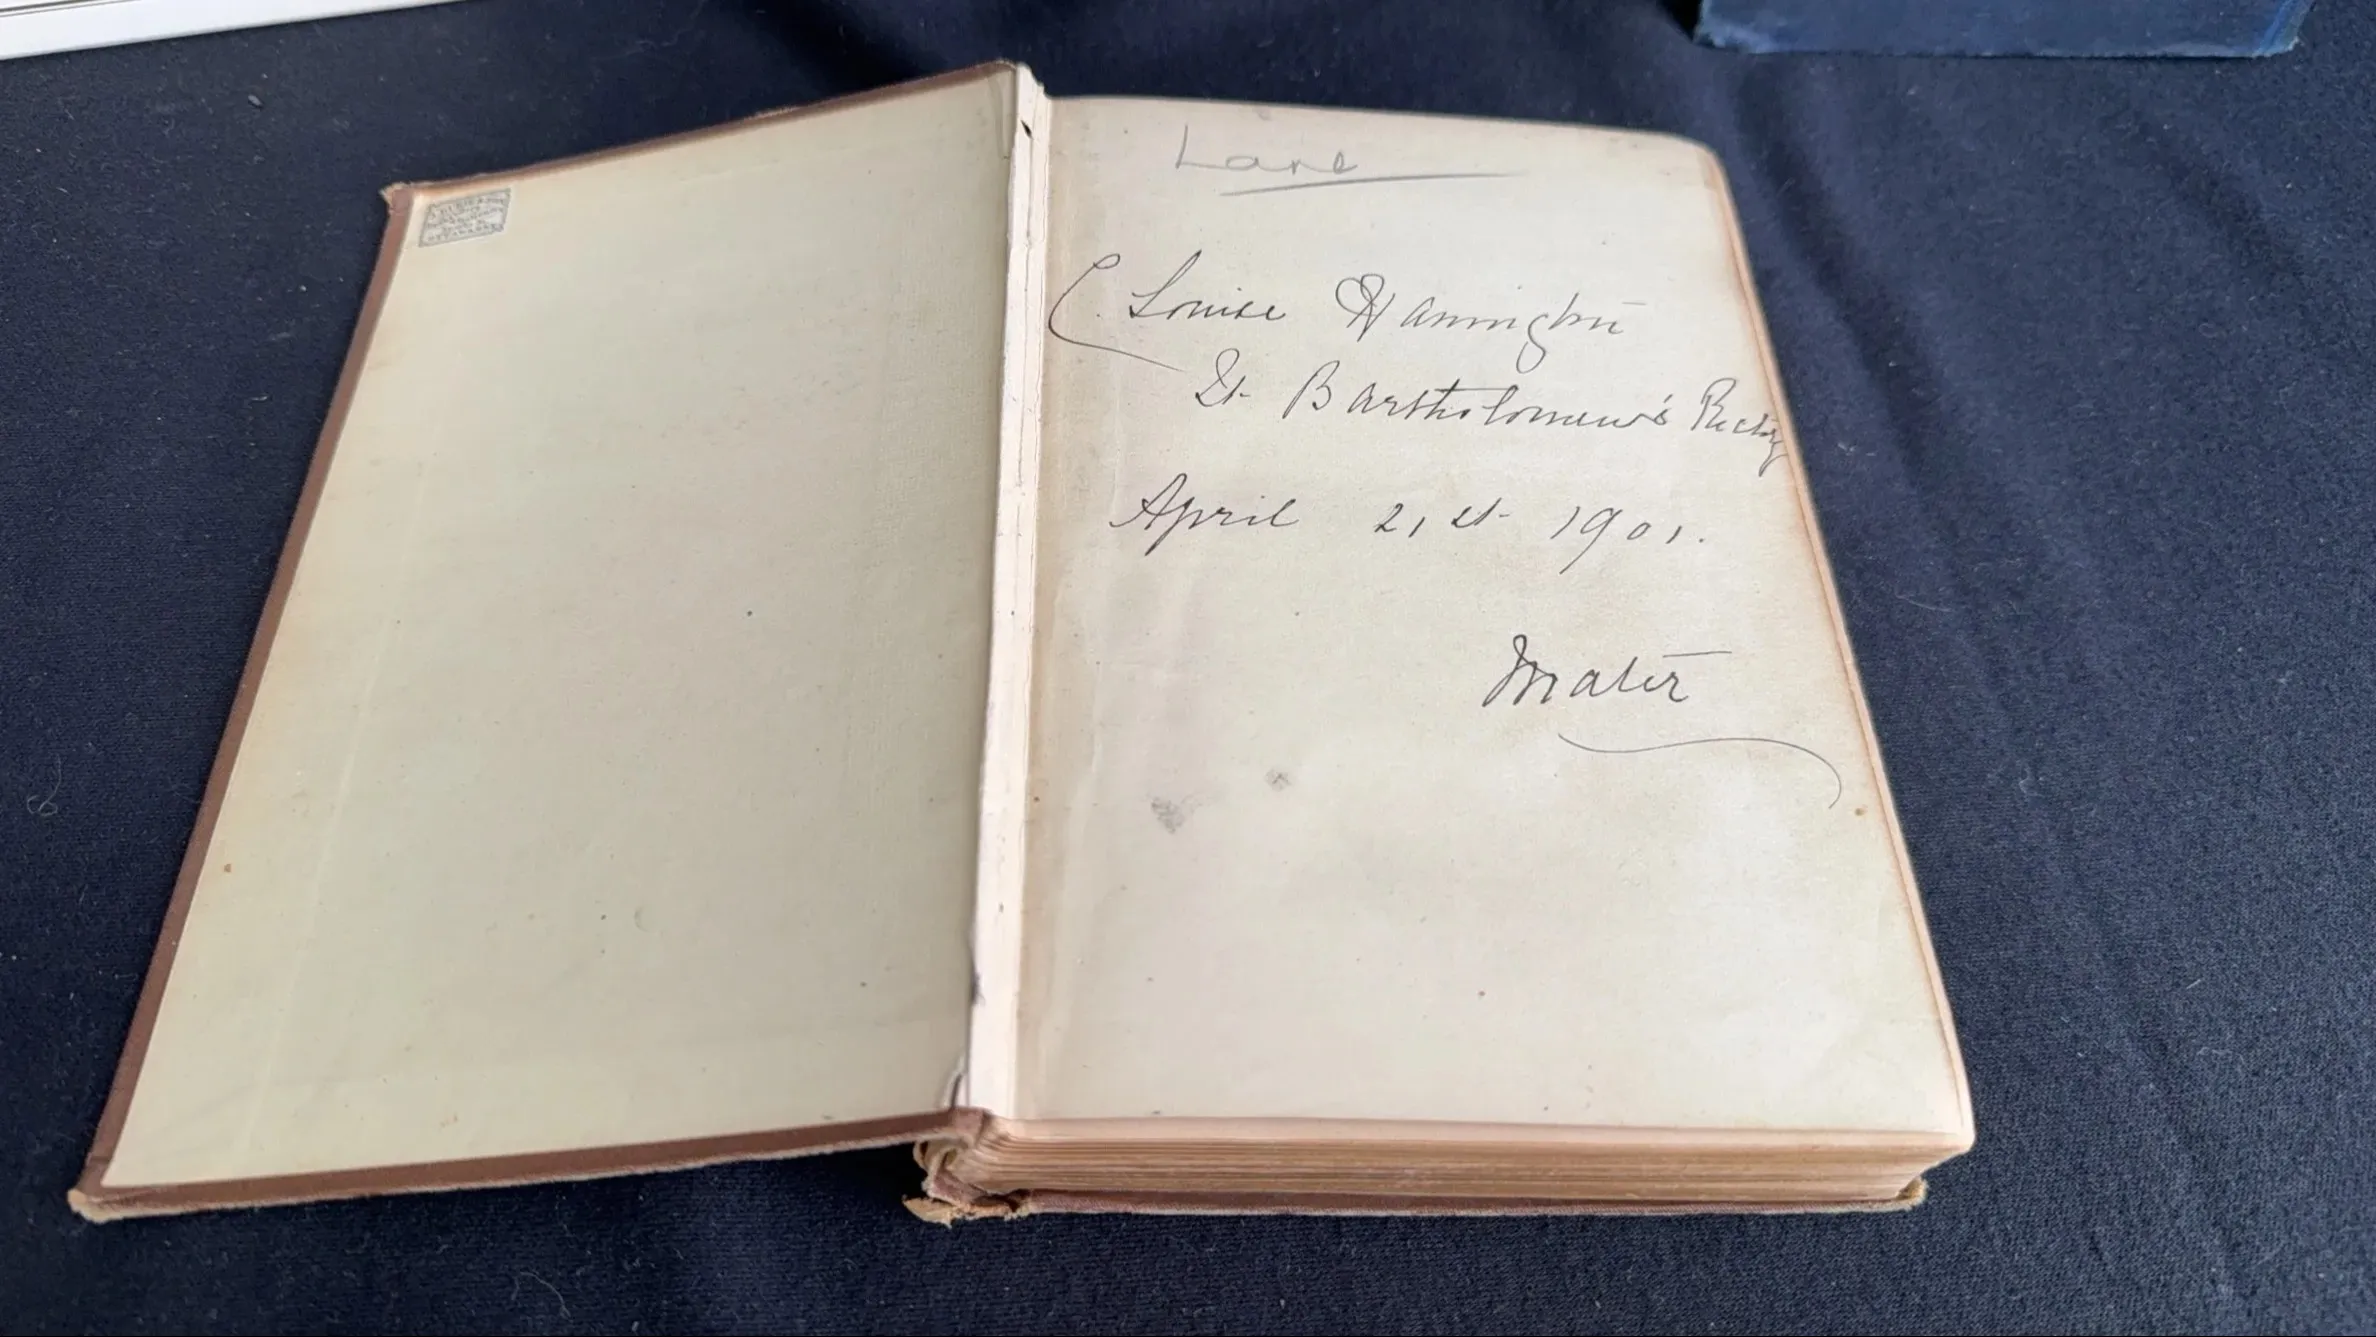 Lane
C. Louise Hanington
St. Bartholomew's Rectory
April 21st 1901.
Mater